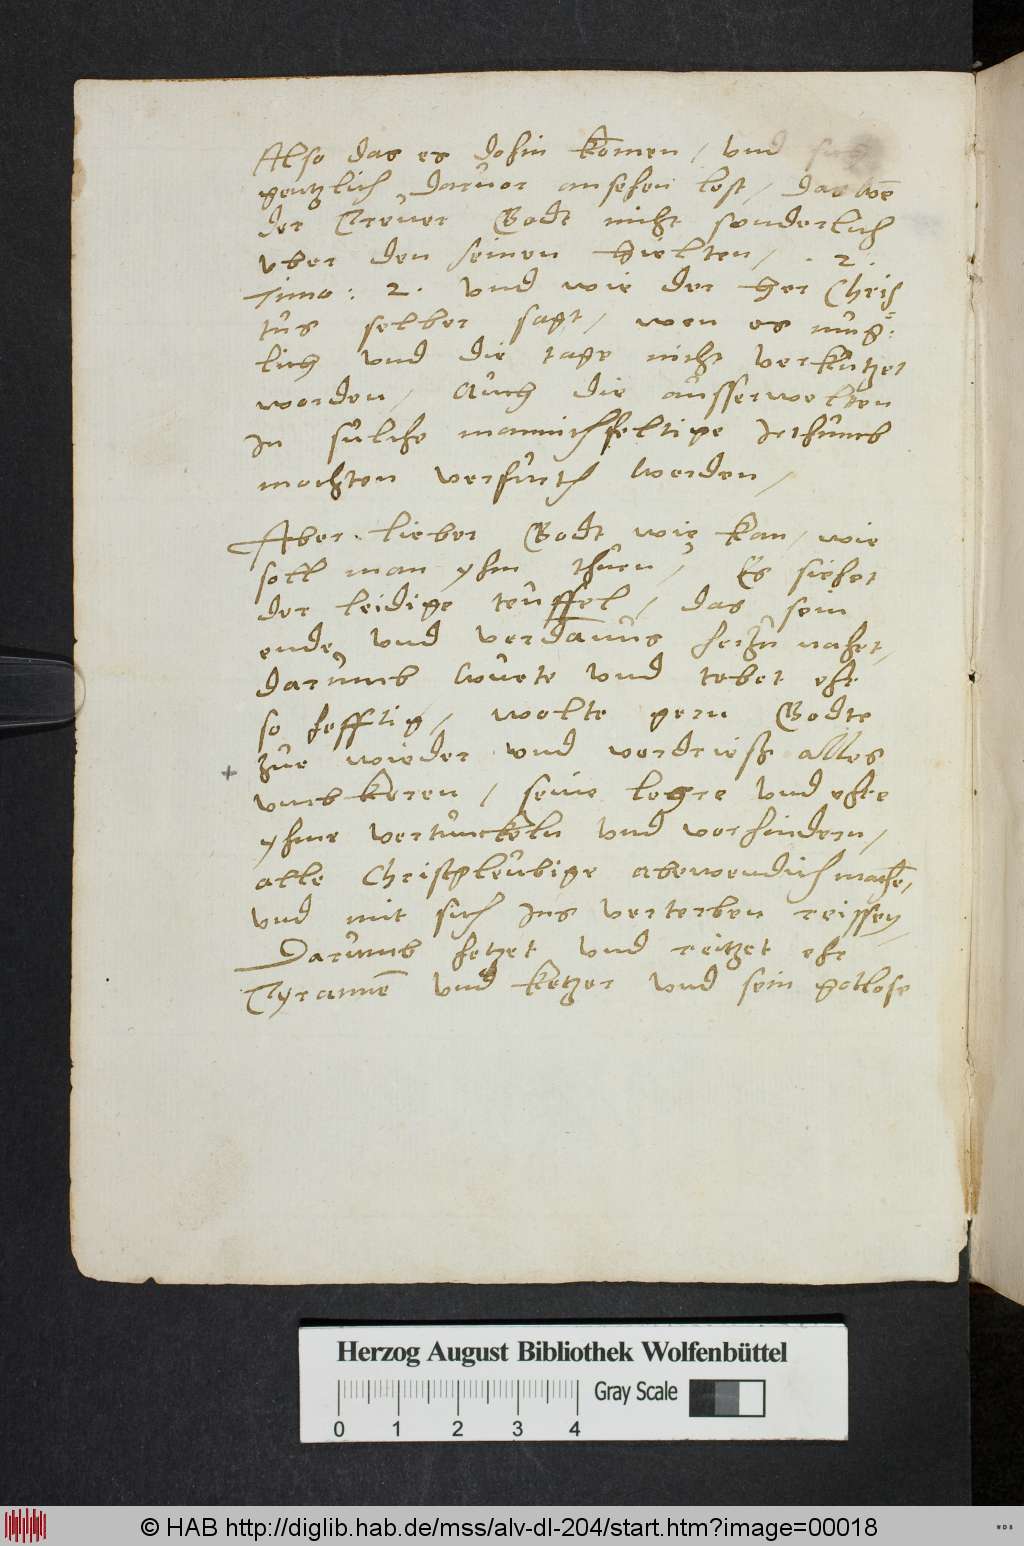 Also das es dohin komen / vnd sich
gentzlich daruor ansehen lest / das wen
der Trewer Godt nicht sonderlich
vber den seinen hielten / . 2 .
Timo : 2 . vnd wie der Her Chris=
tus selber sagt / wen es mug=
lich vnd die tage nicht verkutzet
worden / Auch die ausserwelten
In sulche mannichfeltige Irthumb
mochten verfurth werden /
Aber lieber Godt wie kan / wie
soll man yhm thuen / Es siehet
der leidige teuffel / das sein
ende vnd verdamnus herzu nahet /
darumb wuete vnd tobet ehr
so hefftig / wolte gern Godte
zue wieder vnd verdrieß alles
vmbkeren / seine lehre vnd ehre
yhme vertunckeln vnd verhindern /
alle Christgleubige abewendich mache /
vnd mit sich Ins verterben reissen /
Darumb hetzet vnd reitzet ehr
Tyrannen vnd ketzer vnd sein gotlose
Herzog August Bibliothek Wolfenbüttel
Gray Scale
0 1 2 3 4
© HAB http://diglib.hab.de/mss/alv-dl-204/start.htm?image=00018